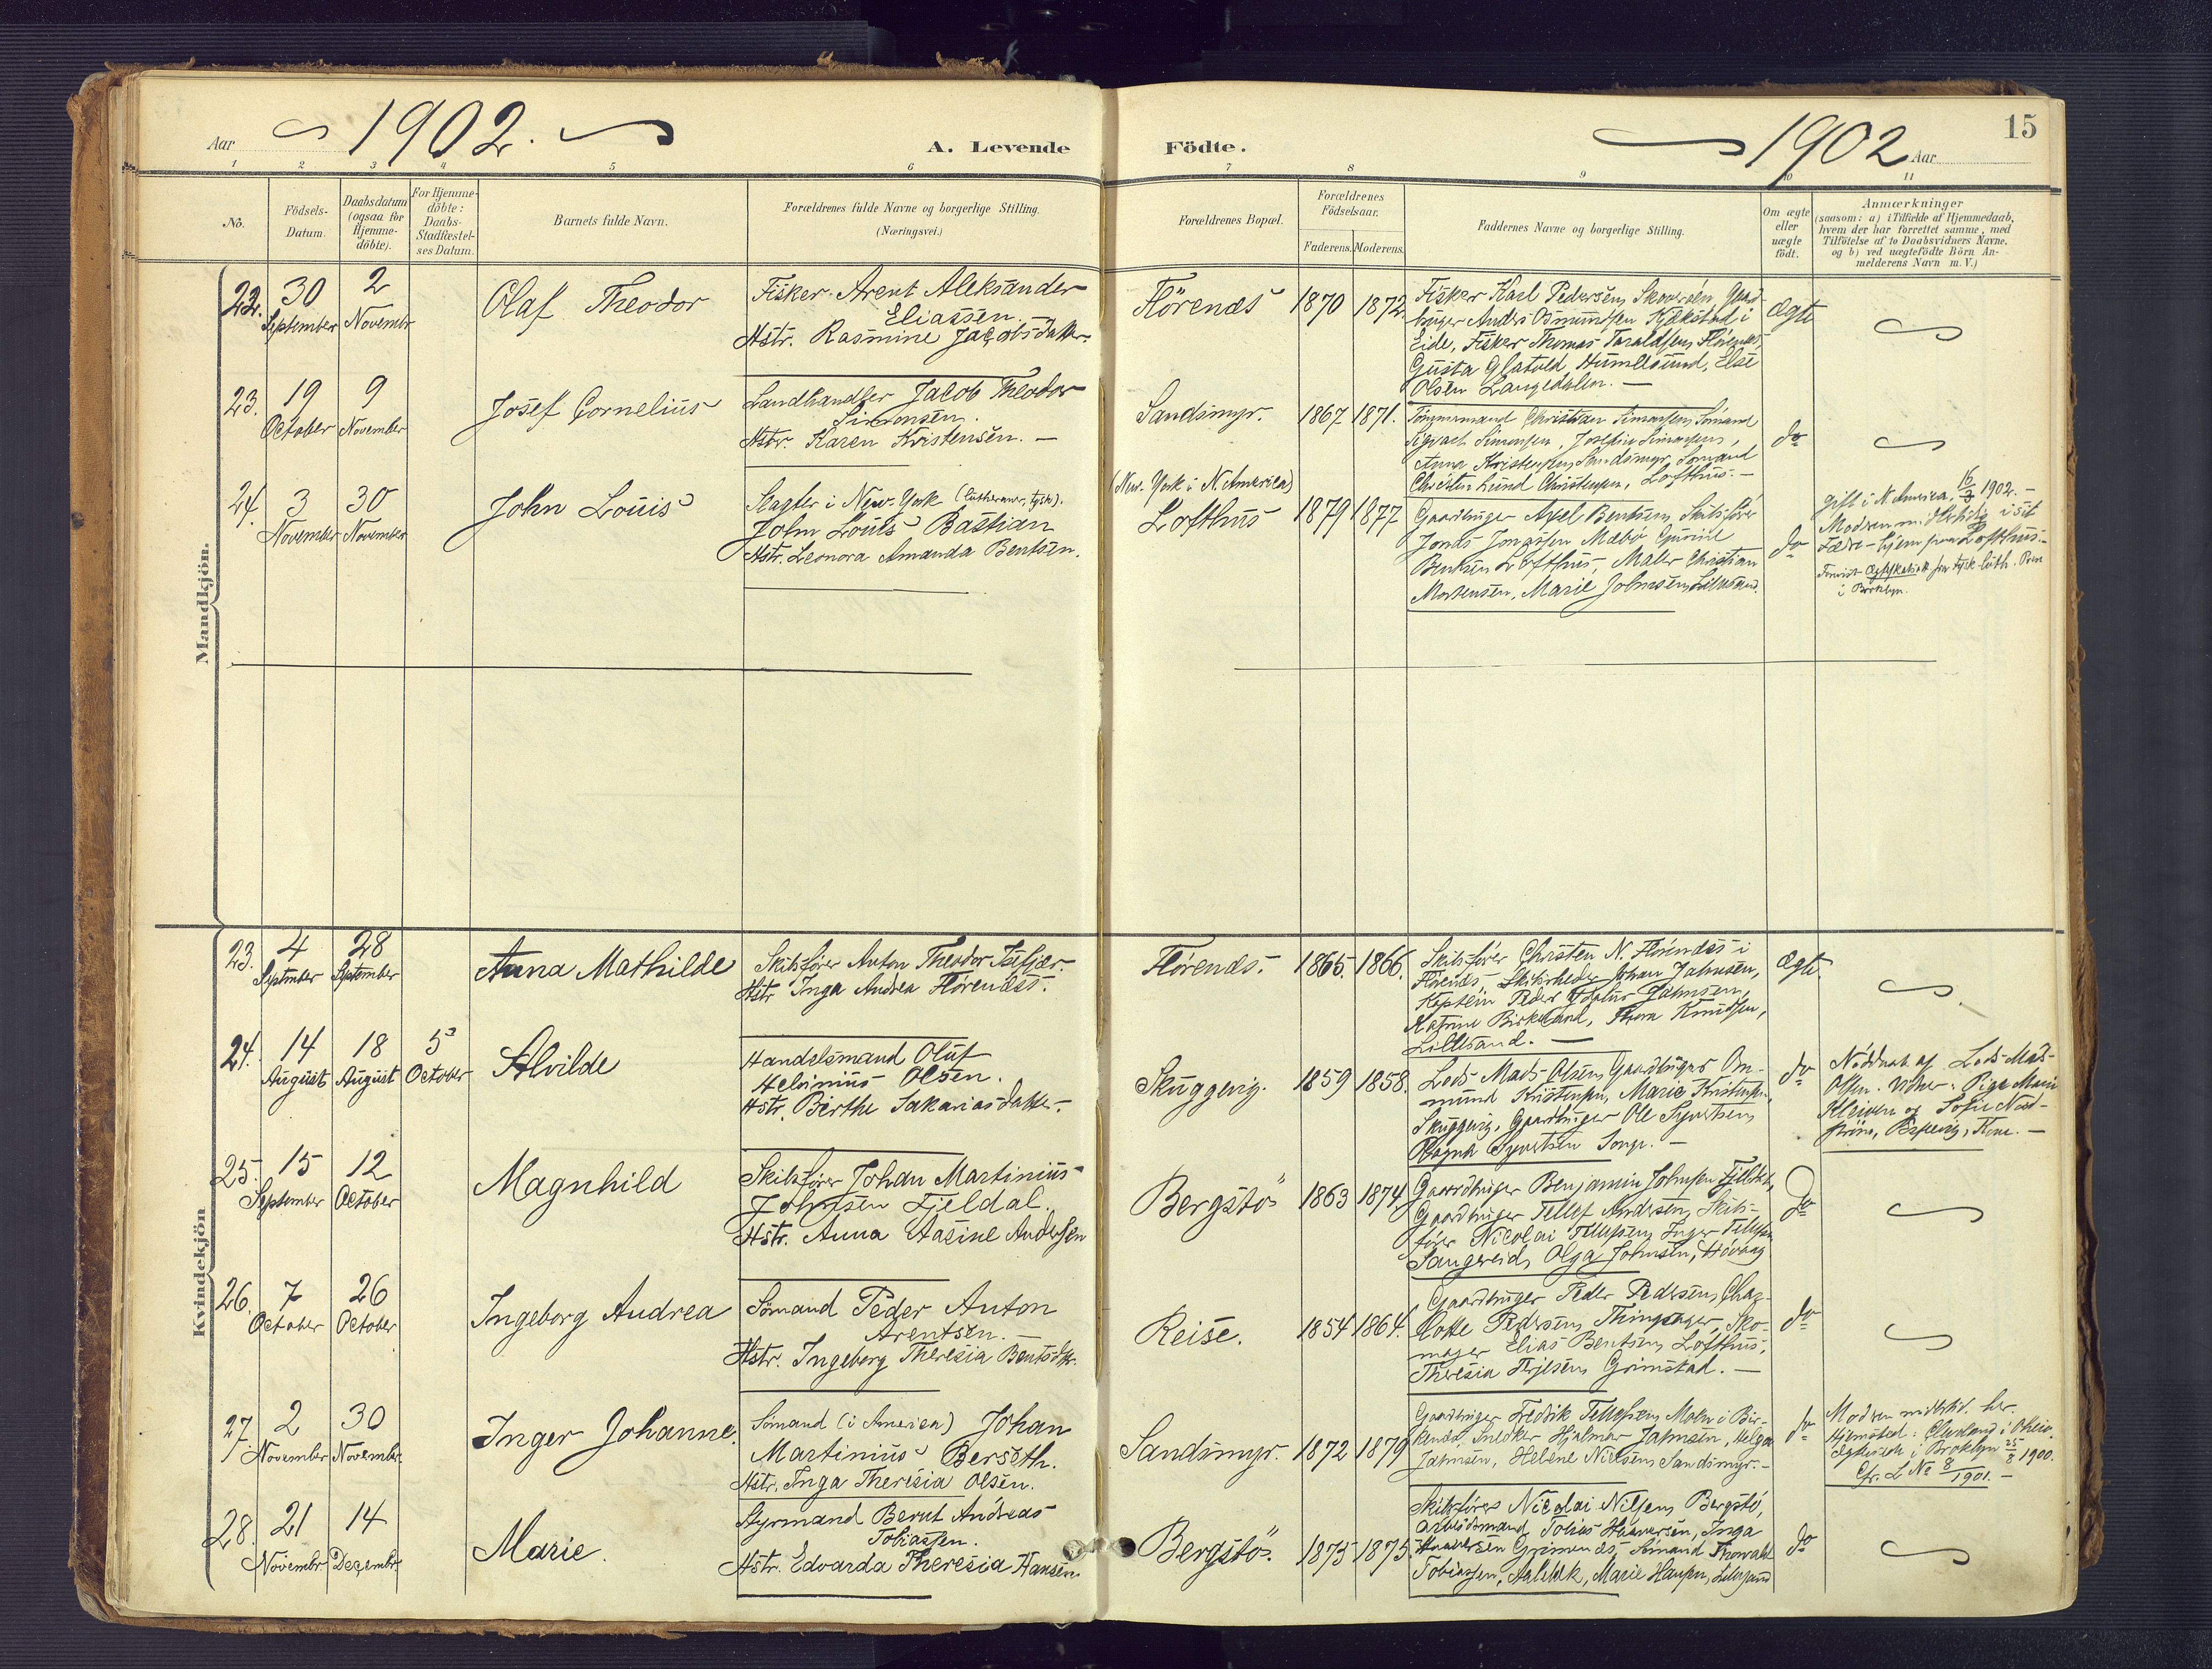 Aar 1902. A. Levende Födte. 1902 Aar 15
1 2 3 4 5 6 7 8 9 10 11
No.
Födsels-
Datum.
Daabsdatum
(ogsaa for
Hjemme-
döbte).
For Hjemme-
döbte:
Daabs-
Stadfæstel-
ses Datum.
Barnets fulde Navn.
Forældrenes fulde Navne og borgerlige Stilling.
(Næringsvei.)
Forældrenes Bopæl.
Forældrenes
Födselsaar.
Faderens. Moderens.
Faddernes Navne og borgerlige Stilling.
Om ægte
eller
uægte
födt.
Anmærkninger
(saasom: a) i Tilfælde af Hjemmedaab,
hvem der har forrettet samme, med
Tilföielse af to Daabsvidners Navne.
og b) ved uægtefödte Börn An-
melderens Navn m. V.)
Mandkjön.
22.
30
September
2
Novembr
Olaf Theodor
Fisker Arent Aleksander
Eliassen. —
Hstr. Rasmine Jacobsdatter.
Hörenæs
1870 1872.
Fisker Karl Pedersen, Gaard-
bruger Anders Osmundsen Kjækstad i
Eide, Fisker Thomas Taraldsen,
Gusta Glatved, Humlesund, Else
Olsen Langedalen. —
Ægte
23.
19
October
9
November
Josef Cornelius
Landhandler Jacob Theodor
Simonsen.
Hstr. Karen Kristensen. —
Sandsmyr.
1867 1871.
Tömmermand Christian Simonsen, Sömand
Sigvart Simonsen, Josefine Simonsen,
Anna Kristensen, Sandsmyr, Sömand
Christen Lund Christensen, Lofthus. —
do
24.
3
November
30
November
John Louis
Slagter i New-York (lutheraner, tysk).
John Louis Bastian
Hstr. Leonora Amanda Bentsen.
(New-York i N. Amerika)
Lofthus
1879 1877
Gaardbruger Axel Bentsen, Skibsförer
Jonas Jonassen Mæbö, Gunvil
Bentsen Lofthus, Maler Christian
Mortensen, Marie Johnsen, Lillesand.
do
gift i N. Amerika, 1902. —
Moderen midlertidig i sit
Fædre-hjem paa Lofthus. —
Forevist fra tysk luth.
i Brooklyn.
Kvindekjön
23.
4
September
28
September
Anna Mathilde
Skibsförer Anton Theodor
Hstr. Inga Andrea Hörenæs.
Hörenæs.
1865. 1866.
Skibsförer Christen N. Hörenæs i
Hörenæs, Skibsrheder Johan Jahnsen,
Kaptein Peder Jahnsen,
Katrine Birkeland, Thora Knudsen,
Lillesand. —
Ægte
24.
14
August
18
August
5
October
Alvilde
Handelsmand Oluf
Helvinius Olsen.
Hstr. Birthe Sakariasdatter.
Skuggevig.
1859 1858.
Lods Mads Olsen, Gaardbruger Om-
mund Kristensen, Marie Kristensen,
Skuggevig, Gaardbruger Ole Syvertsen,
Ragna Syvertsen —
do
Nöddaab af Lods Mads
Olsen. Vidner: Pige Marie
Kleiven og Sofie
—
25.
15
September
12
October
Magnhild
Skibsförer Johan Martinius
Johnsen Fjeldal.
Hstr. Anna Aasine Andersen
Bergstö
1863 1874.
Gaardbruger Benjamin Johnsen Fjeldal,
Gaardbruger Tellef Andersen, Skibs-
förer Nicolai Tellefsen, Inger Tellefsen
Sangereid, Olga Johnsen, Hövaag
do
26.
7
October
26
October
Ingeborg Andrea
Sömand Peder Anton
Arentsen. —
Hstr. Ingeborg Theresia Bentsdtr.
Reise.
1854 1864.
Gaardbruger Peder Pedersen, Char-
lotte Pedersen, Thingsager, Sko-
mager Elias Bentsen, Lofthus,
Theresia Grimstad. —
do
27.
2
November
30
November
Inger Johanne.
Sömand (i Amerika) Johan
Martinius Berseth.
Hstr. Inga Theresia Olsen.
Sandsmyr.
1872 1879
Gaardbruger Fredrik Tellefsen, i Bir-
Snedker Hjalmar Jahnsen, Helga
Jahnsen, Helene Nielsen, Sandsmyr. —
do
Moderen midlertid. her.
Hjemsted: Cleveland i Ohio.
i Broklyn 25/8 1900.
Cfr. L No 8/1901. —
28.
21
Novembr.
14
Decembr.
Marie.
Styrmand Bernt Andreas
Tobiassen.
Hstr. Edvarda Theresia Hansen
Bergstö.
1875 1875.
Skibsförer Nicolai Nilsen, Bergstö,
Arbeidsmand Tobias Haaversen, Inga
Haaversen Grimenæs, Sömand Thorvald
Tobiassen, Marie Hansen, Lillesand
do